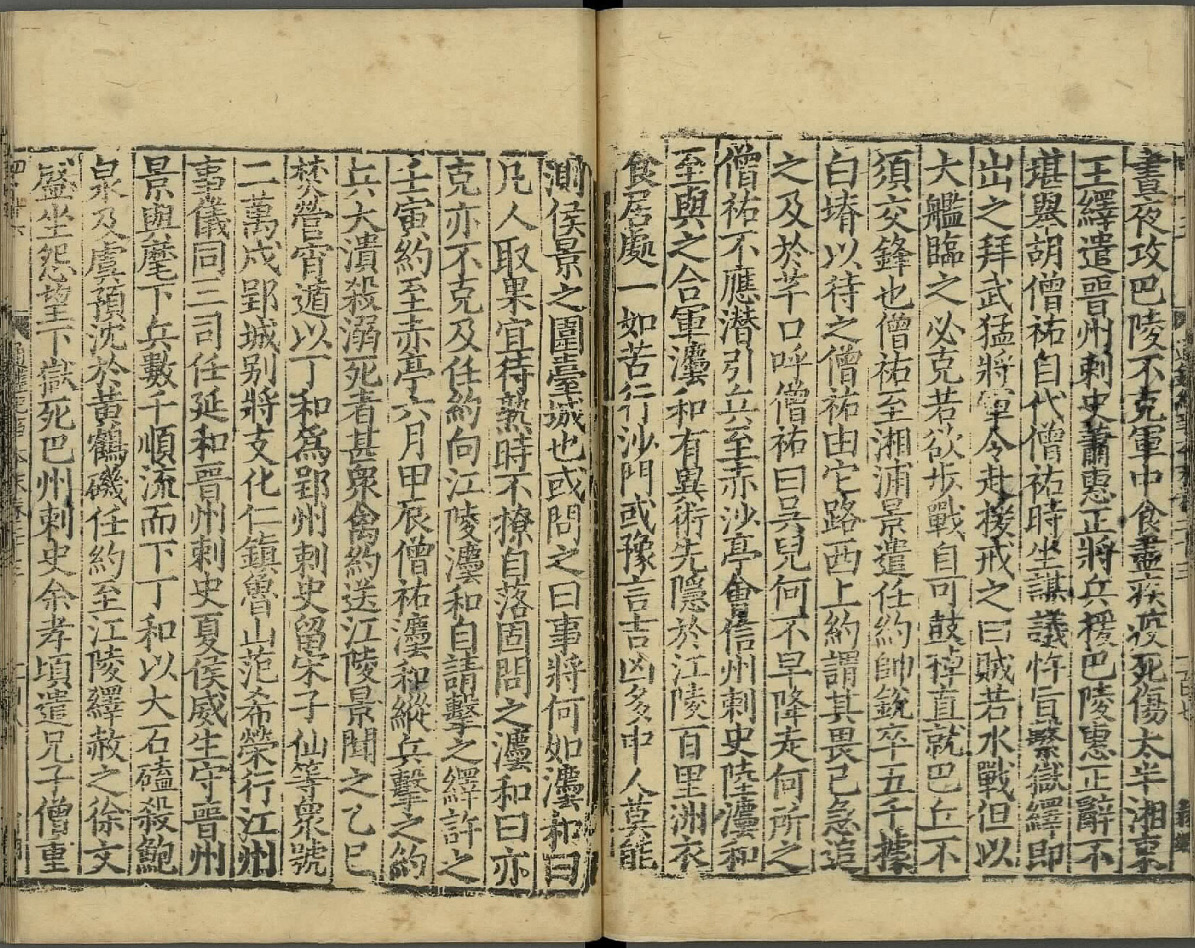 晝夜攻巴陵不克軍中食盡疾疫死傷太半湘東
王繹遣晉州刺史蕭惠正將兵援巴陵惠正辭不
堪舉胡僧祐自代僧祐時坐謀議忤旨繫獄繹即
出之拜武猛將軍令赴援戒之曰賊若水戰但以
大艦臨之必克若欲步戰自可鼓棹直就巴丘不
須交鋒也僧祐至湘浦景遣任約帥銳卒五千據
白塉以待之僧祐由它路西上約謂其畏己急追
之及於芊口呼僧祐曰吳兒何不早降走何所之
僧祐不應潜引兵至赤沙亭會信州刺史陸灋和
至與之合軍灋和有異術先隱於江陵百里洲衣
食居處一如苦行沙門或豫言吉凶多中人莫能
測侯景之圍臺城也或問之曰事將何如灋和曰
凡人取果宜待熟時不撩自落固問之灋和曰亦
克亦不克及任約向江陵灋和自請擊之繹許之
壬寅約至赤亭六月甲辰僧祐灋和縱兵擊之約
兵大潰殺溺死者甚衆禽約送江陵景聞之乙巳
焚營宵遁以丁和爲郢州刺史留宋子仙等衆號
二萬戍郢城别將支化仁鎮魯山范希榮行江州
事儀同三司任延和晉州刺史夏侯威生守晉州
景與麾下兵數千順流而下丁和以大石磕殺鮑
泉及虞預沈於黃鶴磯任約至江陵繹赦之徐文
盛坐怨望下獄死巴州刺史余孝頃遣兄子僧重